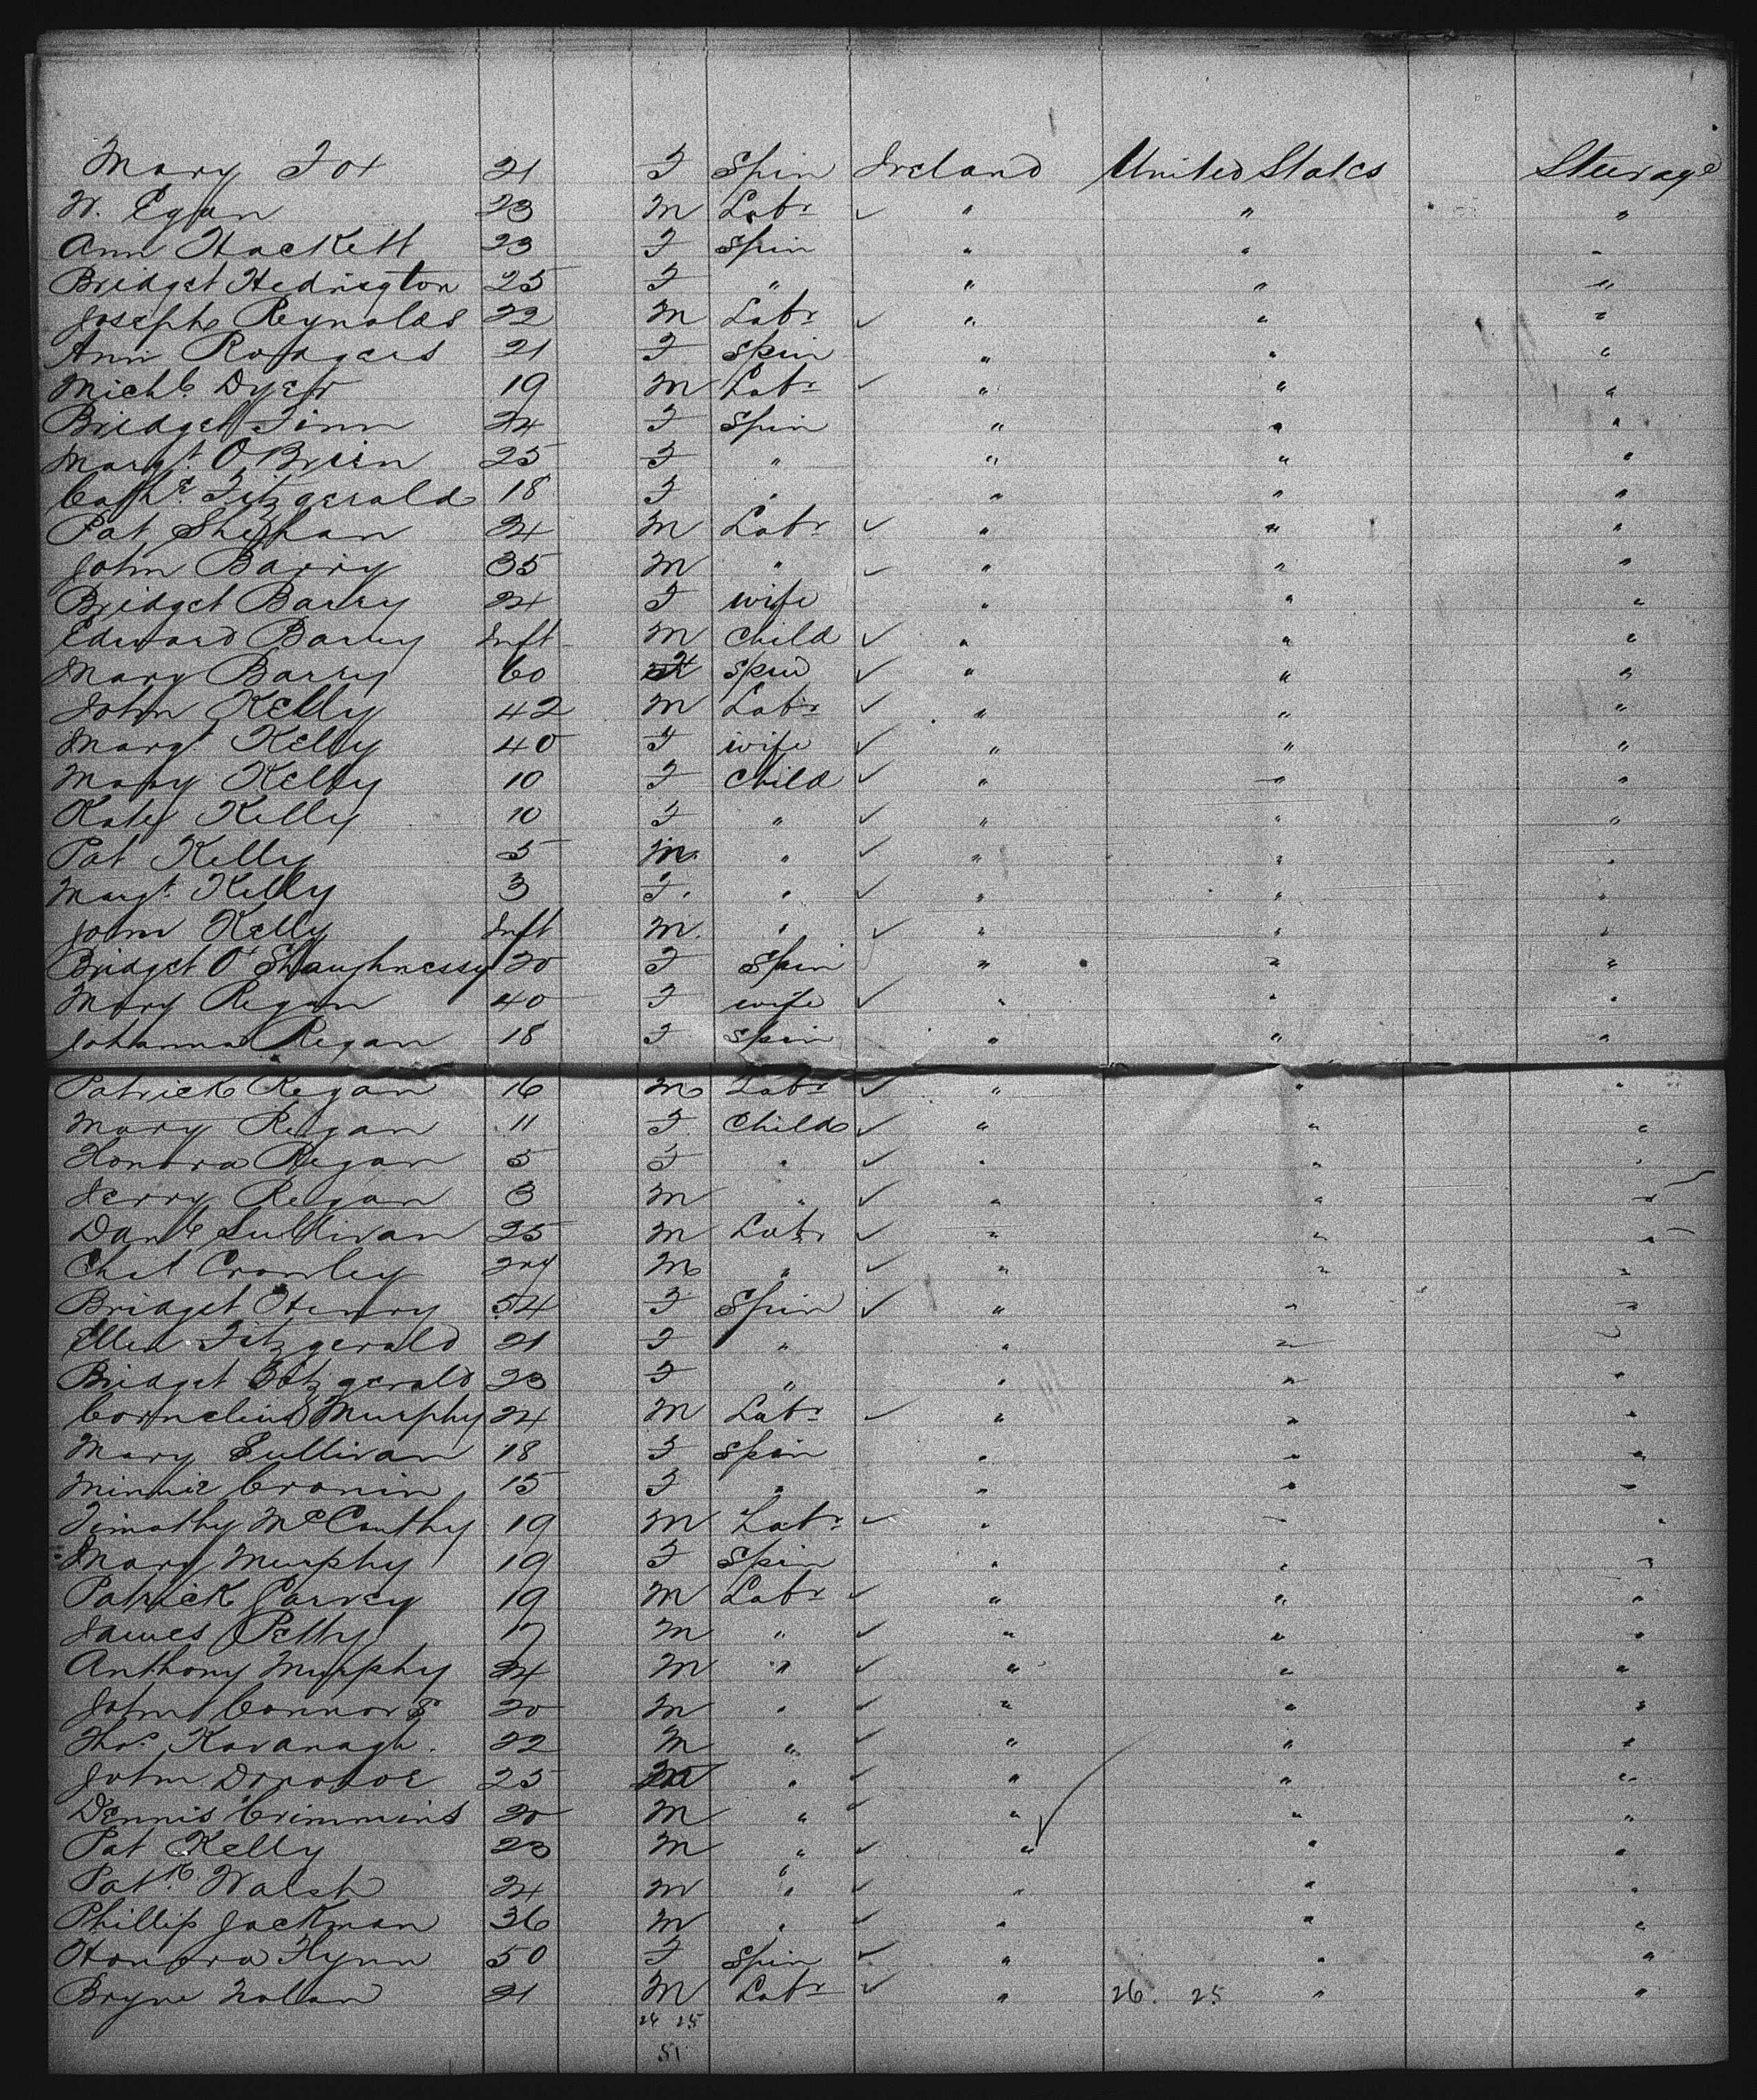 Mary Fox 21 F Spin Ireland United States Steerage
W. Egan 23 M Labr ✓ " " "
Ann Hackett 23 F Spin " " "
Bridget Hedrington 25 F " " " "
Joseph Reynolds 22 M Labr ✓ " " "
Ann Rodgers 21 F Spin " " "
Michl. Dyer 19 M Labr ✓ " " "
Bridget Finn 24 F Spin " " "
Margt. O'Brien 25 F " " " "
Cathe. Fitzgerald 18 F " " " "
Pat Shephan 24 M Labr ✓ " " "
John Barry 35 M " ✓ " " "
Bridget Barry 24 F wife " " "
Edward Barry Inft M Child ✓ " " "
Mary Barry 60 F Spin ✓ " " "
John Kelly 42 M Labr ✓ " " "
Margt Kelly 40 F wife ✓ " " "
Mary Kelly 10 F Child ✓ " " "
Kate Kelly 10 F " ✓ " " "
Pat Kelly 5 M. " ✓ " " "
Margt. Kelly 3 F. " ✓ " " "
John Kelly Inft M. " ✓ " " "
Bridget O'Shaughnessy 20 F Spin " " "
Mary Regan 40 F wife ✓ " " "
Johanna Regan 18 F Spin " " "
Patrick Regan 16 M Labr ✓ " " "
Mary Regan 11 F Child ✓ " " "
Honora Regan 5 F " ✓ " " "
Jerry Regan 3 M " ✓ " " "
Danl Sullivan 25 M Labr ✓ " " "
Chat Crowley 24 M " ✓ " " "
Bridget Henry 54 F Spin ✓ " " "
Ellen Fitzgerald 21 F " " " "
Bridget Fitzgerald 23 F " " " "
Cornelius Murphy 24 M Labr ✓ " " "
Mary Sullivan 18 F Spin " " "
Minnie Cronin 15 F " " " "
Timothy McCauthy 19 M Labr ✓ " " "
Mary Murphy 19 F Spin " " "
Patrick Garvey 19 M Labr ✓ " " "
James Petty 17 M " ✓ " " "
Anthony Murphy 24 M " ✓ " " "
John Connors 20 M " ✓ " " "
Thos. Kavanagh. 22 M " ✓ " " "
John Donohoe 25 M " ✓ " " "
Dennis Crimmins 20 M " ✓ " " "
Pat Kelly 23 M " ✓ " " "
Patk. Walsh 24 M " ✓ " " "
Phillip Jackman 36 M " ✓ " " "
Honora Flynn 50 F Spin ✓ " " "
Bryne Nolan 21 M Labr ✓ " 26. 25 " "
26 25
51